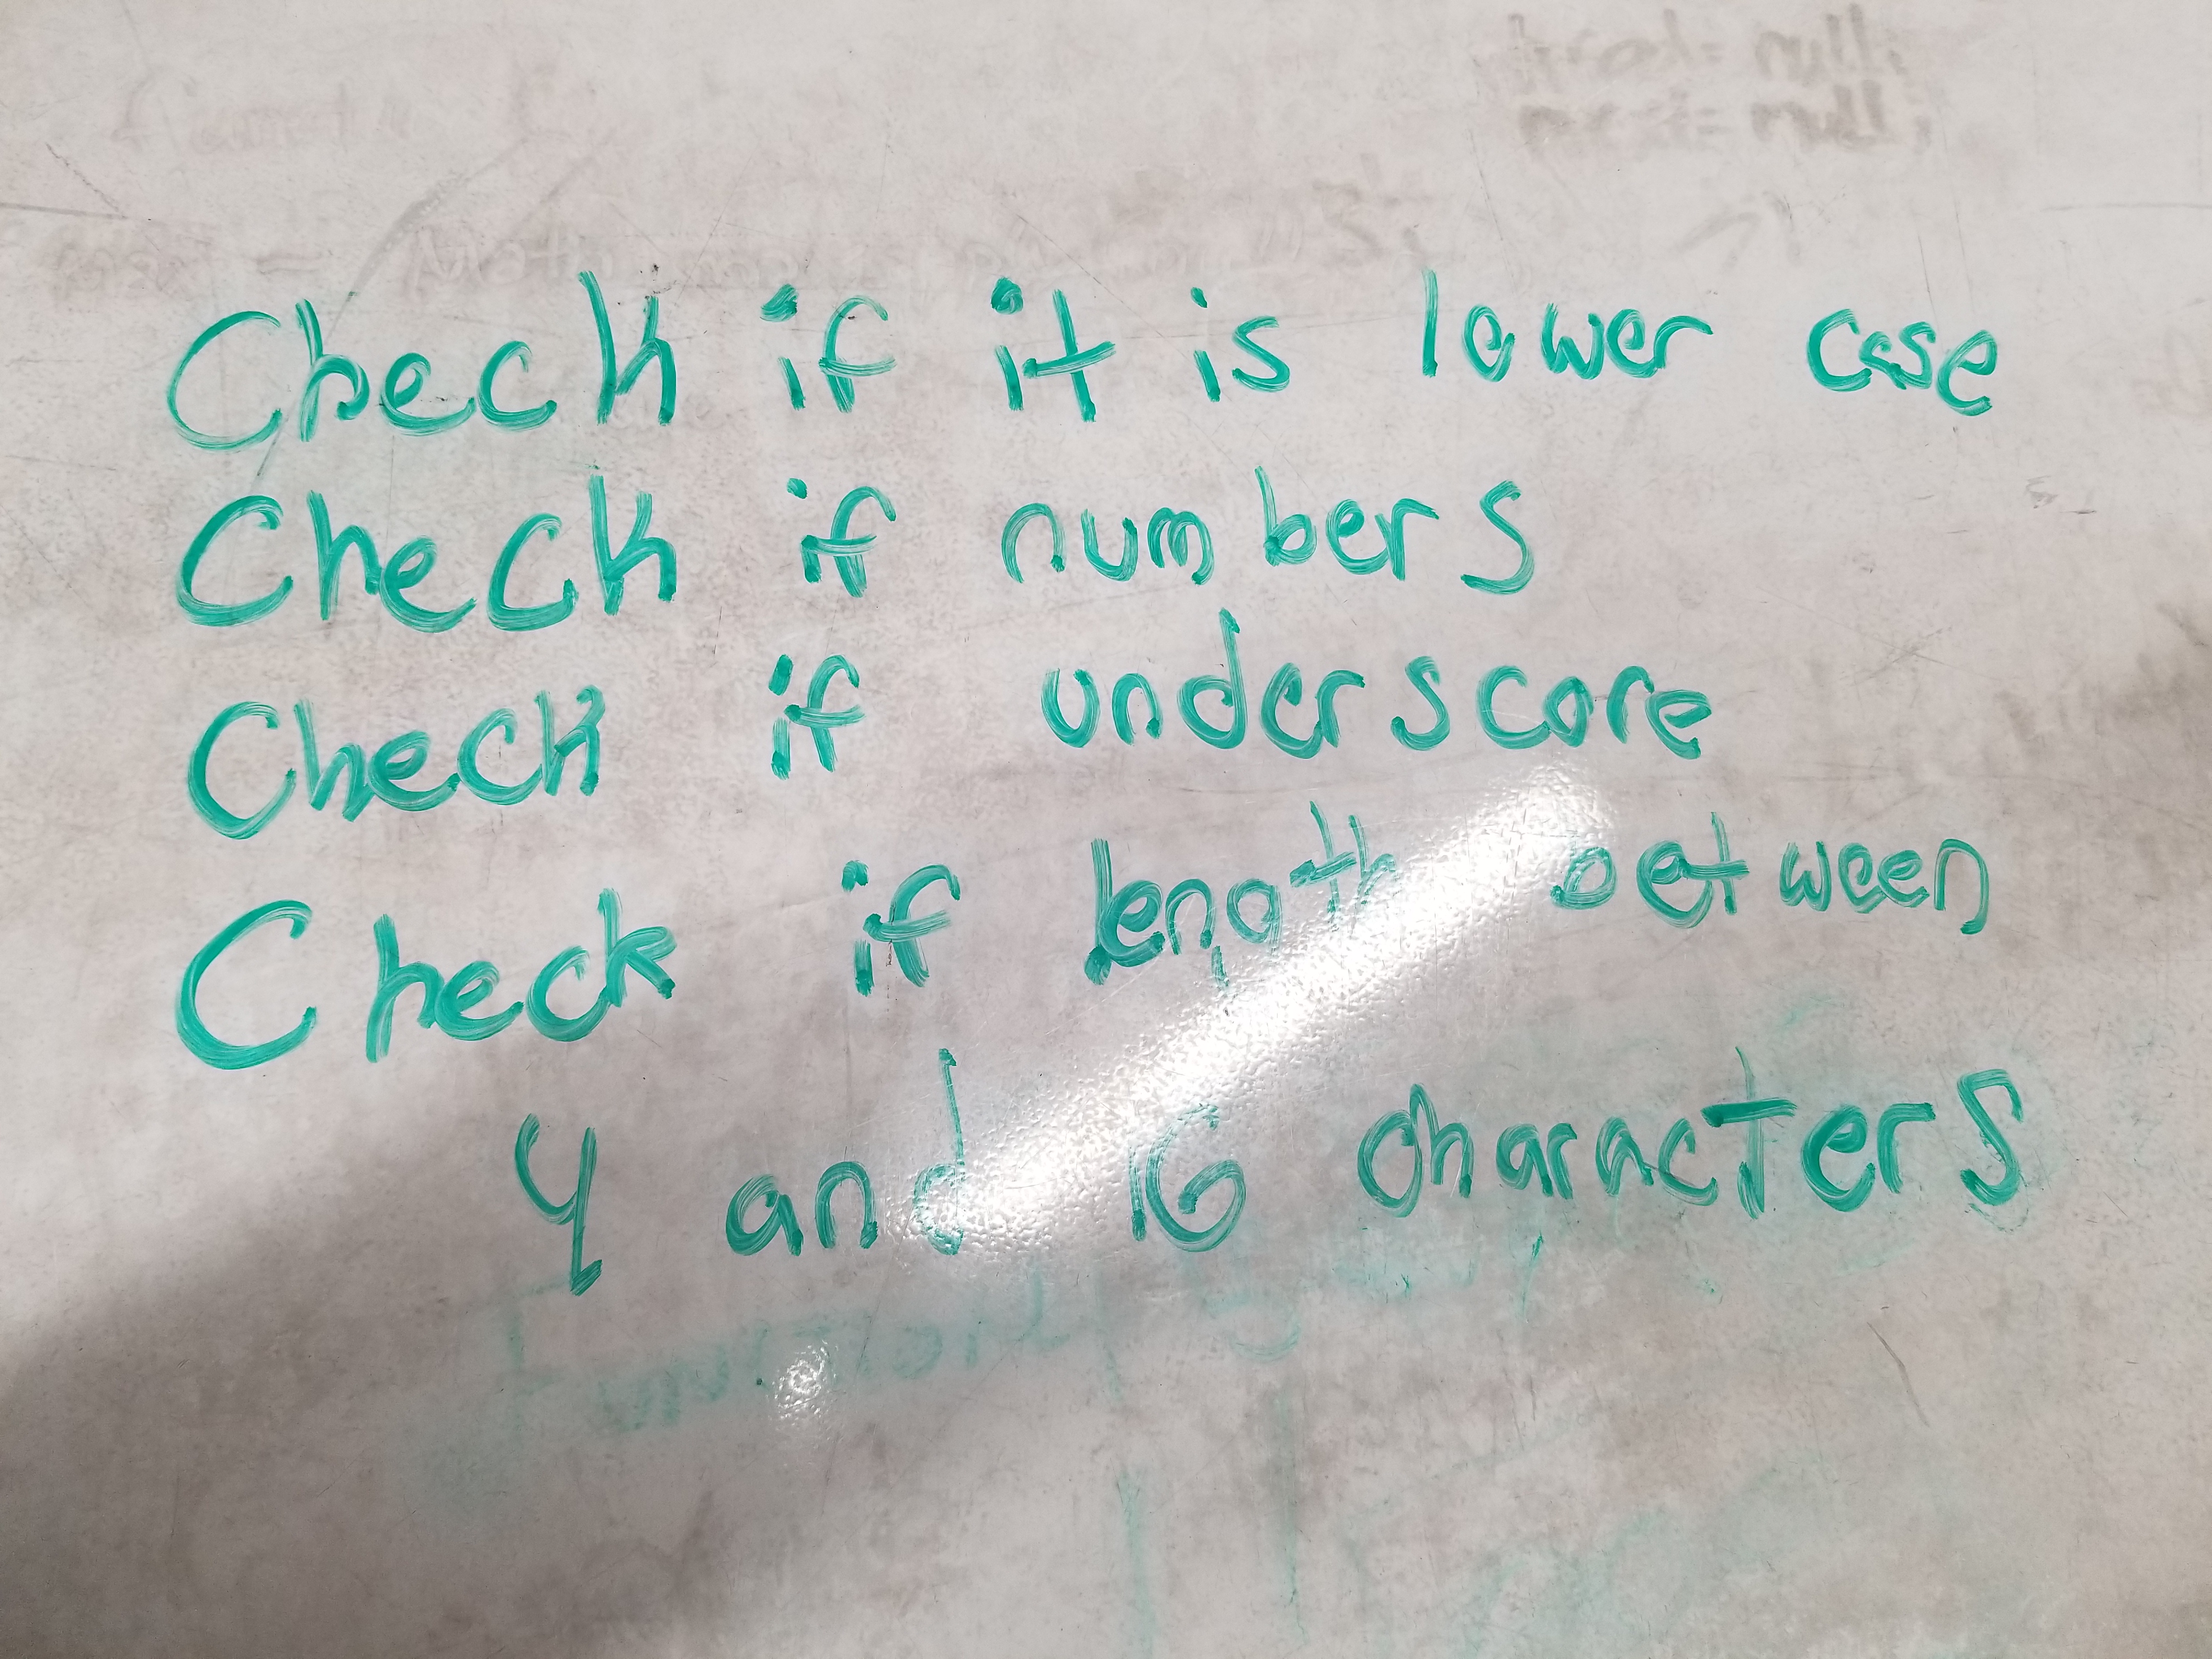 Check if it is lower case
Check if numbers
Check if underscore
Check if length between
4 and 16 characters